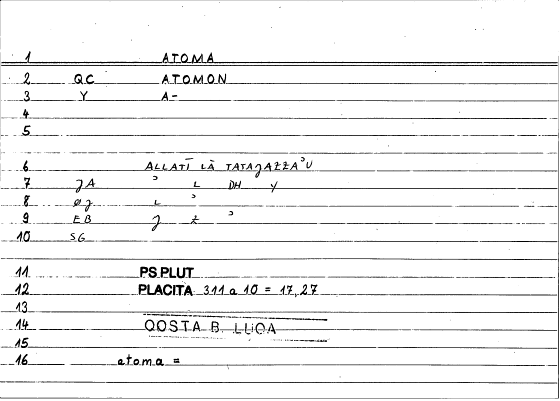 1 ATOMA
2 QC ATOMON
3 Y A-
4
5
6 ALLATĪ LĀ TATAJAZZAʾU
7 JA ʾ L DH Y
8 ØJ L ʾ
9 EB J Z ʾ
10 SG
11 PS.PLUT
12 PLACITA 311 a 10 = 17,27
13
14 QOSTA B. LUQA
15
16 atoma =